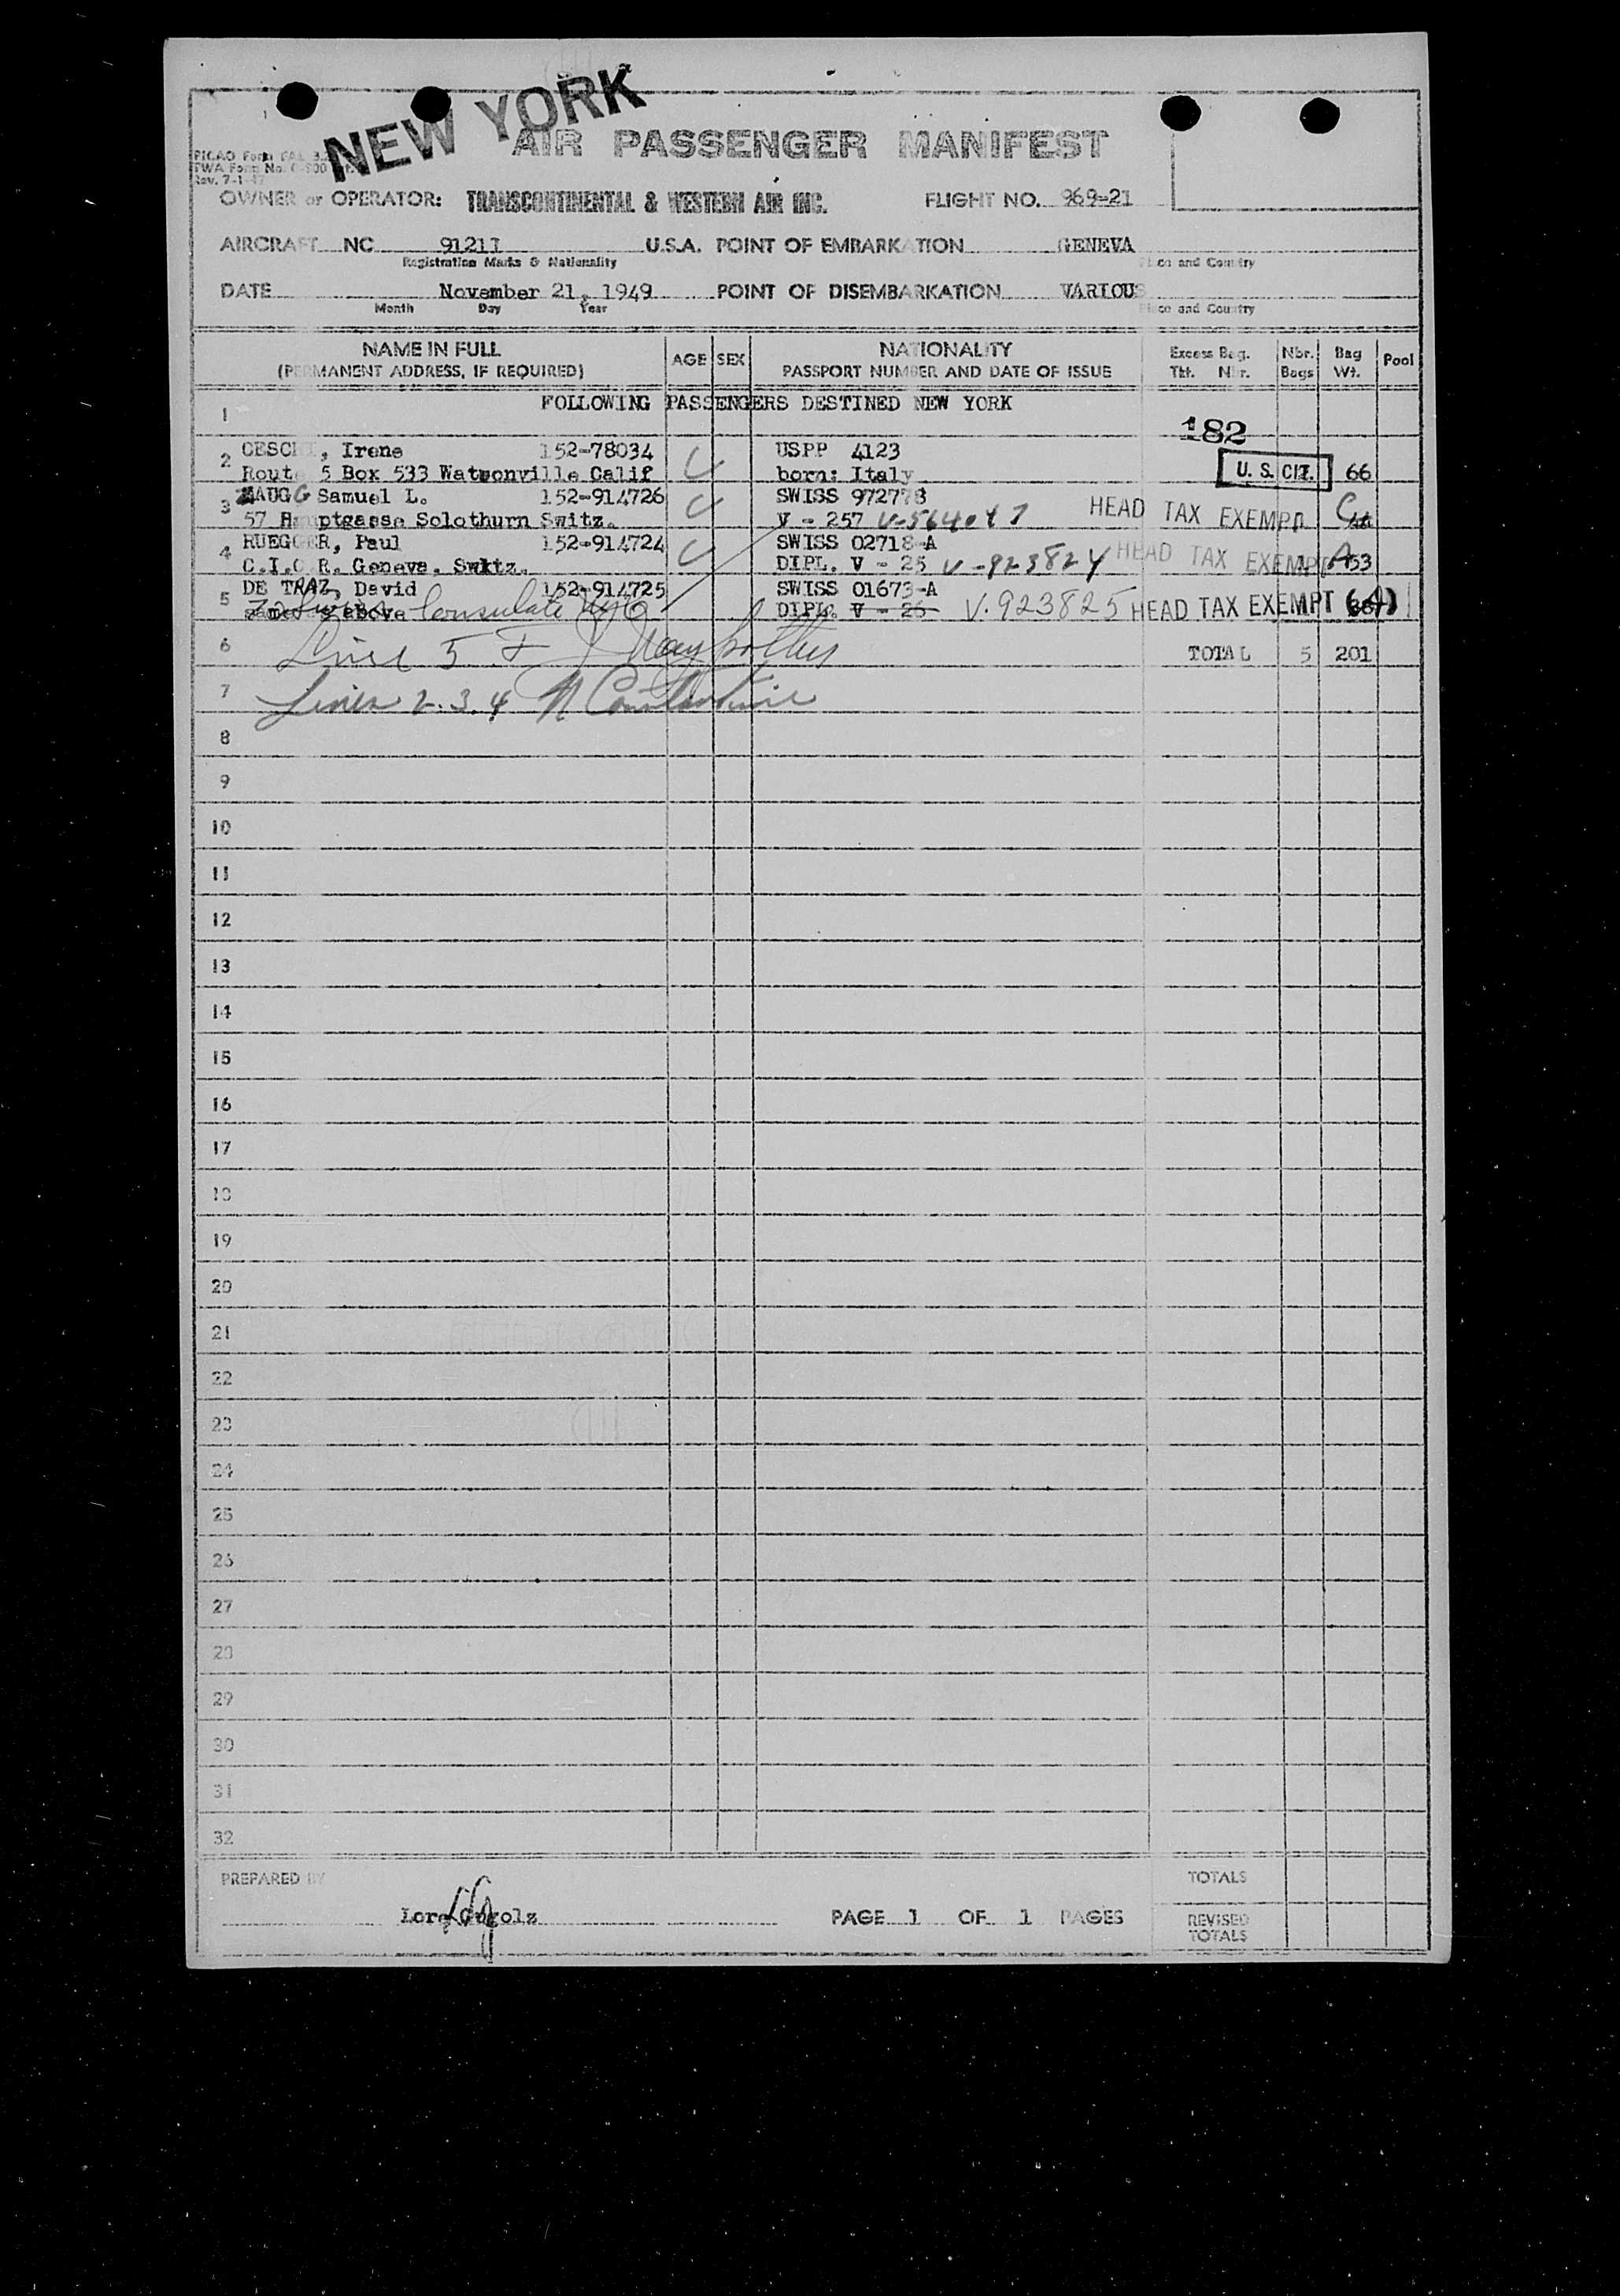 NEW YORK
AIR PASSENGER MANIFEST
Rev. 7-1-47
OWNER or OPERATOR: TRANSCONTINENTAL & WESTERN AIR INC. FLIGHT NO. 969-21
AIRCRAFT NC 91211 U.S.A. POINT OF EMBARKATION GENEVA
Registration Marks & Nationality Place and Country
DATE November 21, 1949 POINT OF DISEMBARKATION VARIOUS
Month Day Year Place and Country
NAME IN FULL AGE SEX NATIONALITY Excess Bag. Nbr. Bag Pool
(PERMANENT ADDRESS, IF REQUIRED) PASSPORT NUMBER AND DATE OF ISSUE Tkt. Nbr. Bags Wt.
1 FOLLOWING PASSENGERS DESTINED NEW YORK
182
2 Irene 152-78034 USPP 4123
Route 5 Box 533 Watsonville Calif born: Italy U. S. CIT. 66
3 ZAUGG Samuel L. 152-914726 SWISS 972778
57 Hauptgasse Solothurn Switz. V - 257 V-564047 HEAD TAX EXEMPT
4 RUEGGER, Paul 152-914724 SWISS 02718-A
C.I.C.R. Geneva. Swktz. DIPL. V - 25 V-923824 HEAD TAX EXEMPT A 53
5 DE TRAZ, David 152-914725 SWISS 01673-A
same as above Consulate NYC DIPL. V - 26 V.923825 HEAD TAX EXEMPT (A)
6 Line 5 TOTAL 5 201
7 Lines 2.3.4 N Constantine
8
9
10
11
12
13
14
15
16
17
18
19
20
21
22
23
24
25
26
27
28
29
30
31
32
PREPARED BY TOTALS
PAGE 1 OF 1 PAGES REVISED
TOTALS